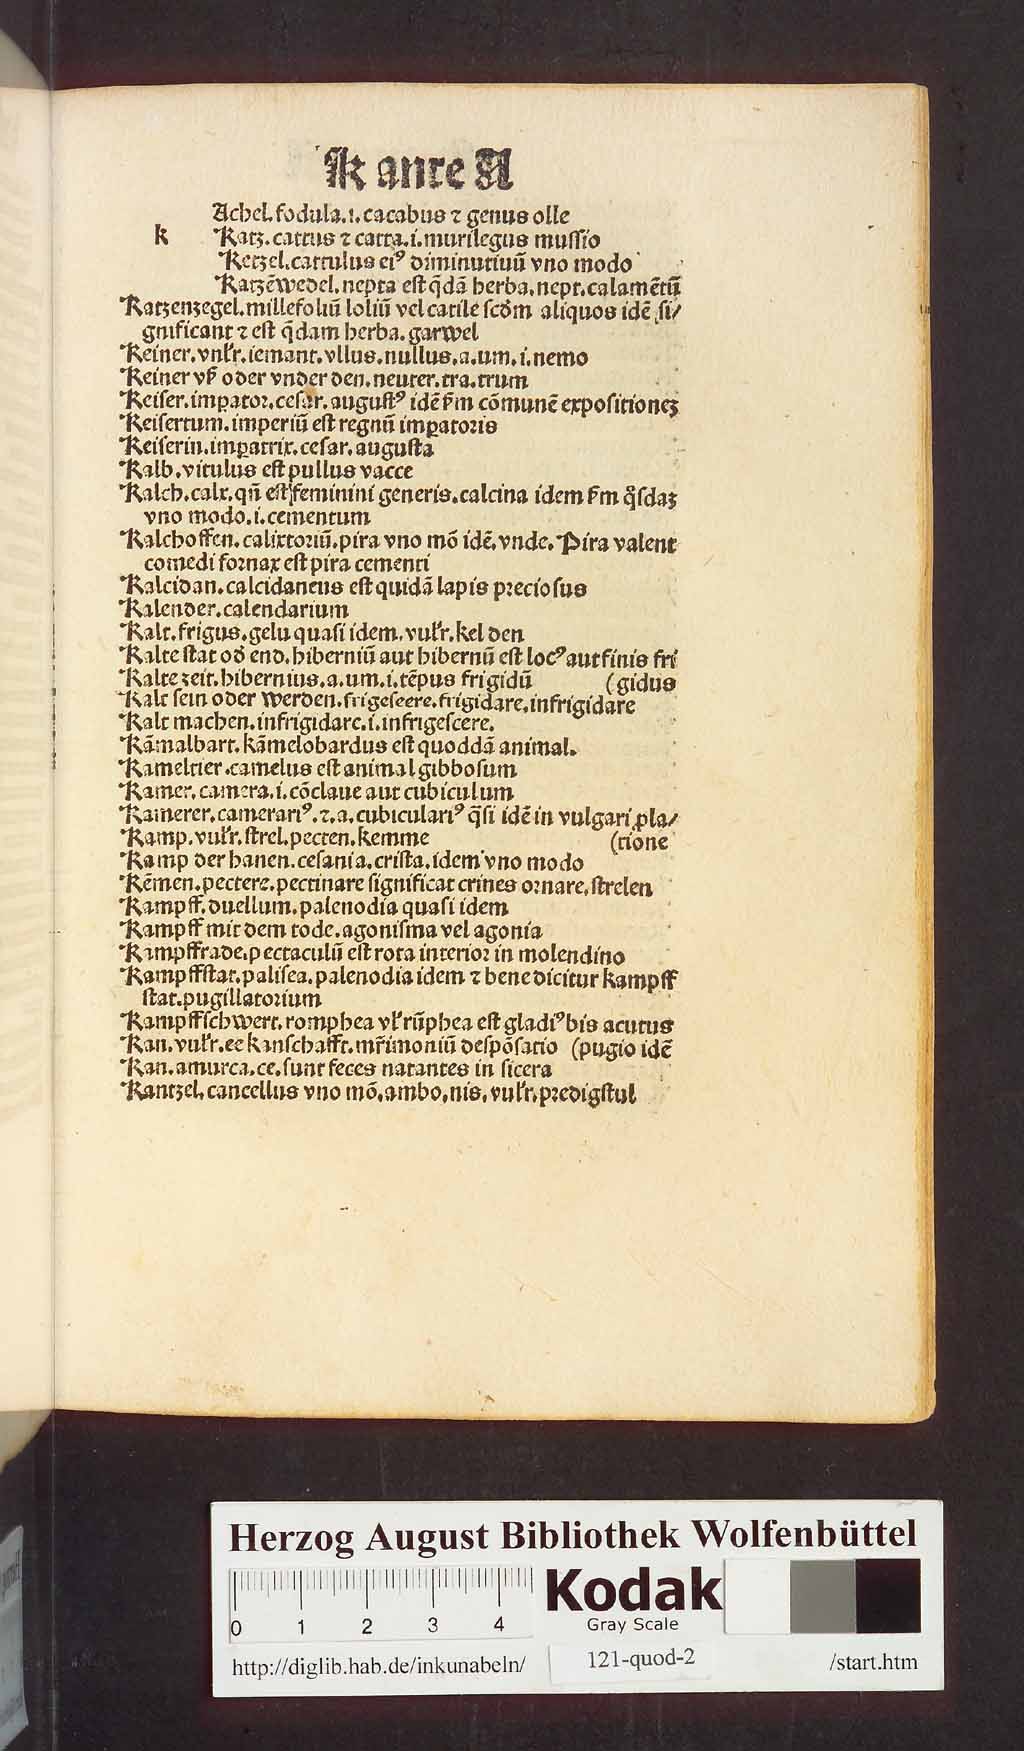 K ante A
Achel.fodula.i.cacabus ⁊ genus olle
k Katz.cattus ⁊ catta.i.murilegus mussio
Ketzel.cattulus eiꝰ diminutiuū vno modo
Katzēwedel.nepta est q̄dā herba.nept.calamētū
Katzenzegel.millefoliū loliū vel catile scd̄m aliquos idē si/
gnificant ⁊ est q̄dam herba.garwel
Keiner.vul'r.iemant.vllus.nullus.a.um.i.nemo
Keiner vß oder vnder den.neuter.tra.trum
Keiser.imꝑator.cesar.augustꝰ idē ẜm cōmunē expositionez
Keisertum.imperiū est regnū imꝑatoris
Keiserin.imꝑatrix.cesar.augusta
Kalb.vitulus est pullus vacce
Kalch.calx.qn̄ est feminini generis.calcina idem ẜm q̊sdaz
vno modo.i.cementum
Kalchoffen.calixtoriū.pira vno mō idē.vnde.Pira valent
comedi fornax est pira cementi
Kalcidan.calcidaneus est quidā lapis preciosus
Kalender.calendarium
Kalt.frigus.gelu quasi idem.vul'r.kelden
Kalte stat od̄ end.hiberniū aut hibernū est locꝰ aut finis fri
Kalte zeit.hibernius.a.um.i.tēpus frigidū (gidus
Kalt sein oder werden.frigescere.frigidare.infrigidare
Kalt machen.infrigidare.i.infrigescere.
Kāmalbart.kāmelobardus est quoddā animal.
Kameltier.camelus est animal gibbosum
Kamer.camera.i.cōclaue aut cubiculum
Kamerer.camerariꝰ.⁊.a.cubiculariꝰ q̄si idē in vulgari ꝓla/
Kamp.vul'r.strel.pecten.kemme (tione
Kamp der hanen.cesania.crista.idem vno modo
Kēmen.pectere.pectinare significat crines ornare.strelen
Kampff.duellum.palenodia quasi idem
Kampff mit dem tode.agonisma vel agonia
Kampffrade.pectaculū est rota interior in molendino
Kampffstat.palisea.palenodia idem ⁊ bene dicitur kampff
stat.pugillatorium
Kampffschwert.romphea vl' rūphea est gladiꝰ bis acutus
Kan.vul'r.ee kanschafft.mr̄imoniū despōsatio (pugio idē
Kan.amurca.ce.sunt feces natantes in sicera
Kantzel.cancellus vno mō.ambo.nis.vul'r.predigstul
Herzog August Bibliothek Wolfenbüttel
0 1 2 3 4
Kodak
Gray Scale
http://diglib.hab.de/inkunabeln/ 121-quod-2 /start.htm